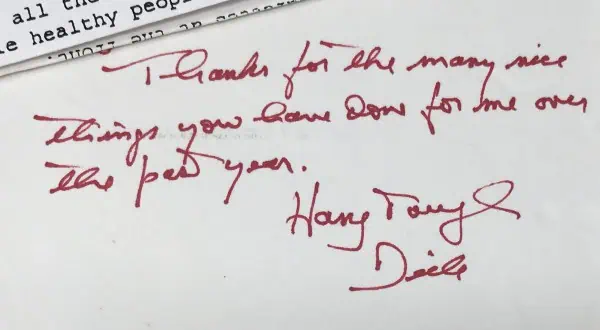 all the
le healthy peop
Thanks for the many nice
things you have done for me over
the past year.
Hang Tough
Dick